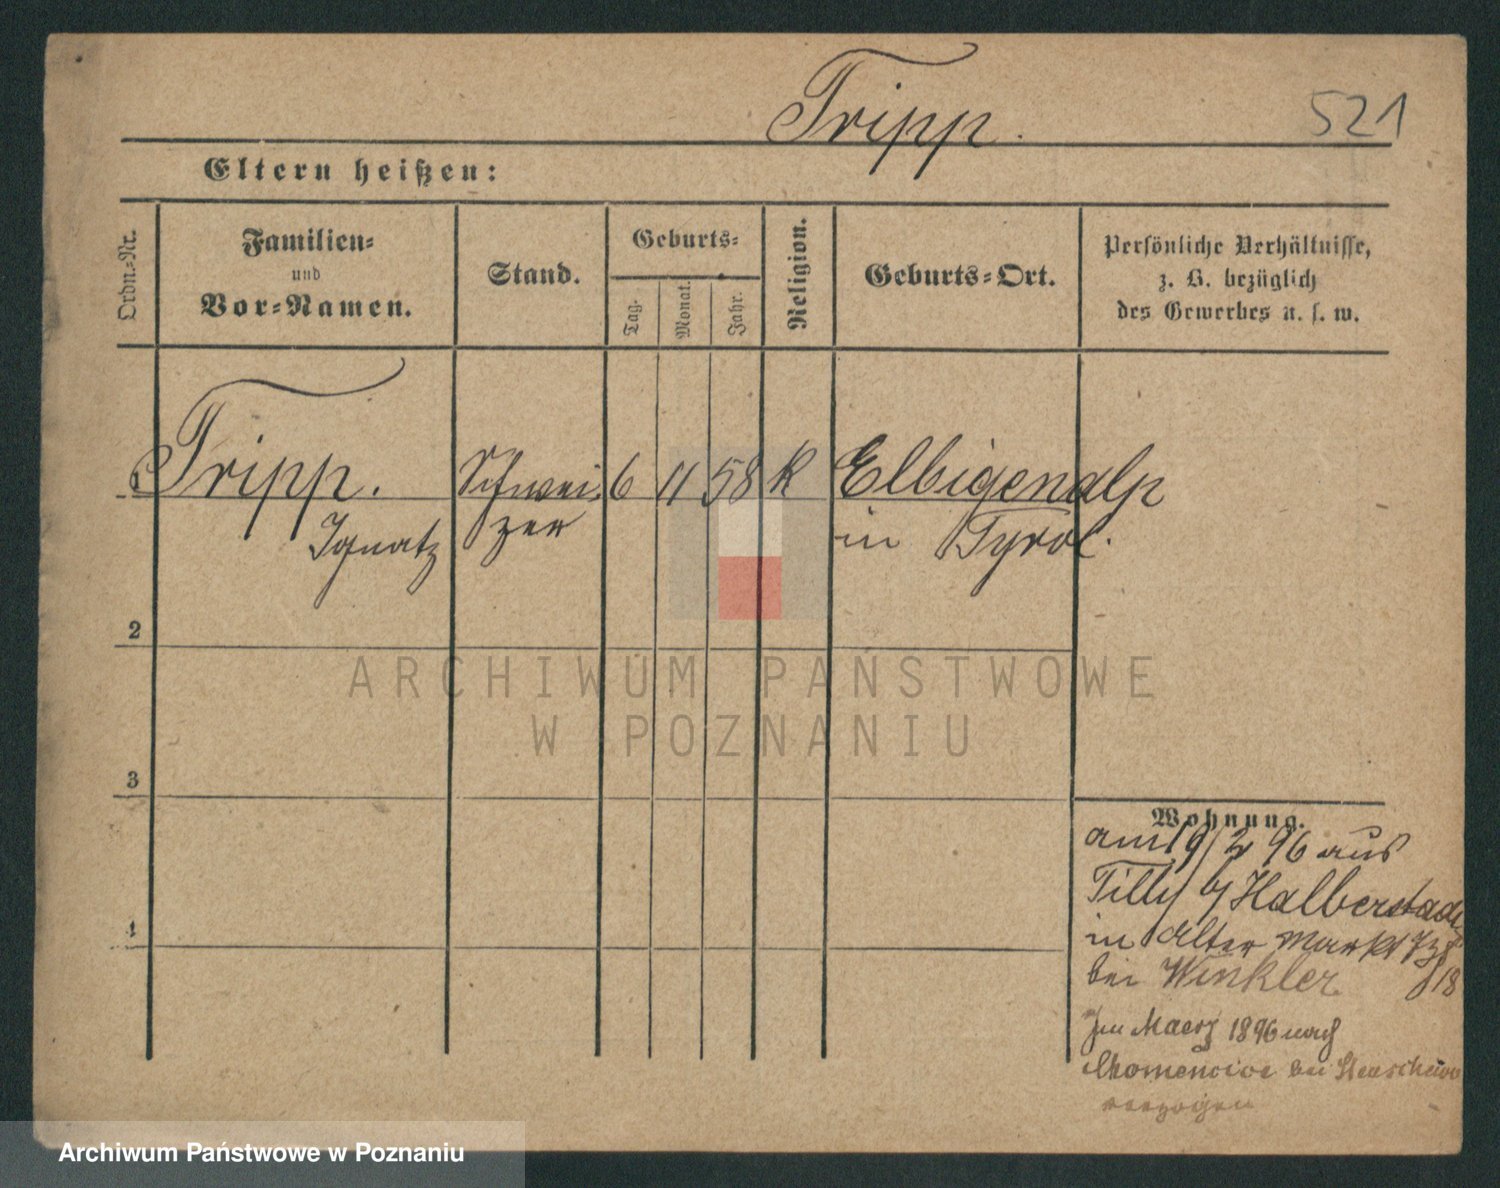 Tripp.
521
Eltern heißen:
Ordn.-Nr.
Familien-
und
Vor-Namen.
Stand.
Geburts-
Tag.
Monat.
Jahr.
Religion.
Geburts-Ort.
Persönliche Verhältnisse,
z. B. bezüglich
des Gewerbes u. s. w.
1 Tripp. Schwei- 6 11 58 k Elbigenalp
Ignatz zer in Tyrol.
2
ARCHIWUM PAŃSTWOWE
W POZNANIU
3
Wohnung.
am 19/2 96 aus
Tilly b/ Halberstadt
in Alter Markt
bei Winkler 18
Im Maerz 1896 nach
bei
verzogen
4
Archiwum Państwowe w Poznaniu